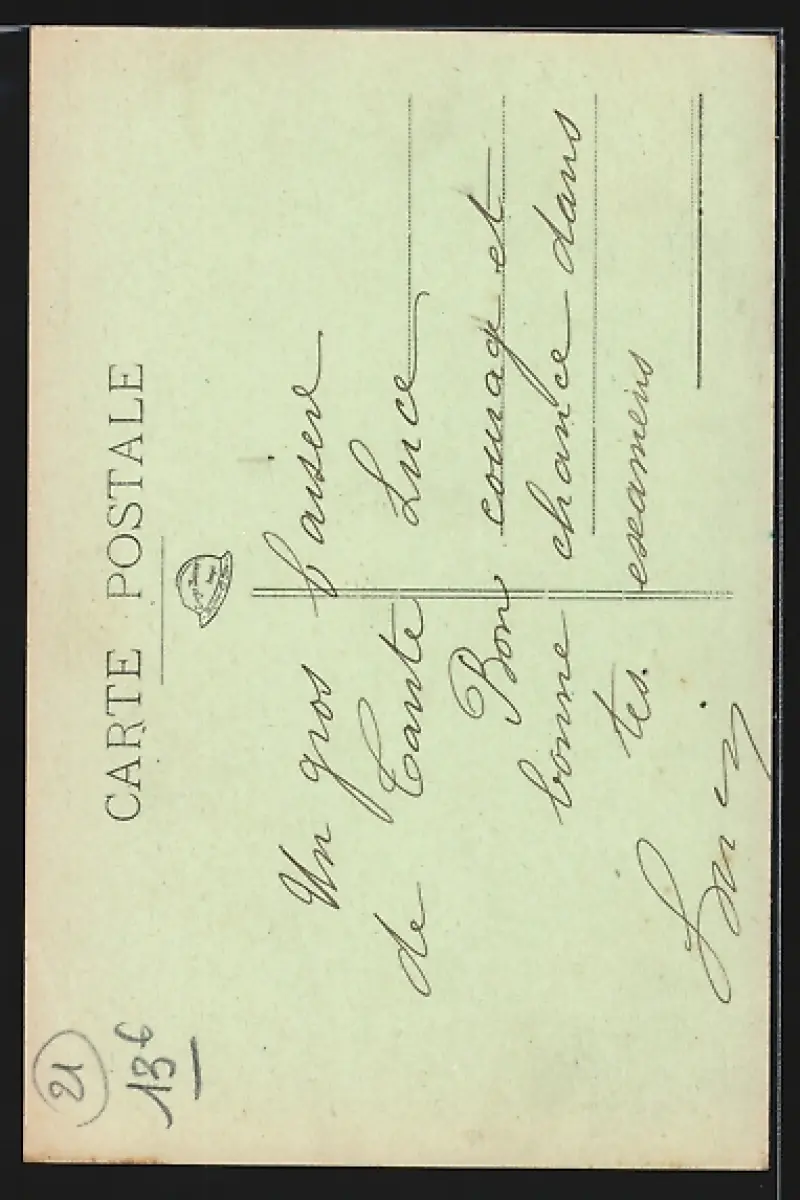 CARTE POSTALE
21
13€
Un gros baiser
de Tante Luce
Bon courage et
bonne chance dans
tes examens